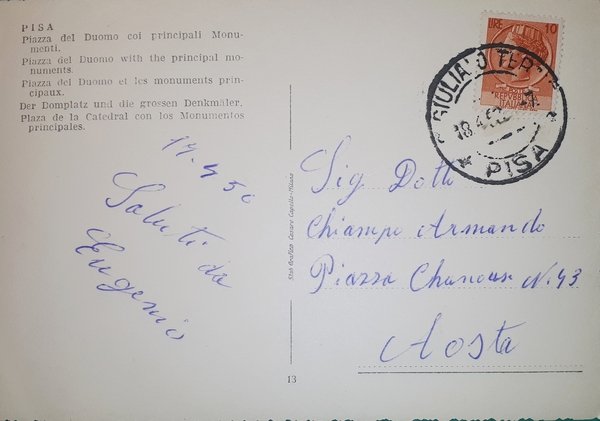 PISA
Piazza del Duomo coi principali Monu-
menti.
Piazza del Duomo with the principal mo-
numents.
Piazza del Duomo et les monuments prin-
cipaux.
Der Domplatz und die grossen Denkmäler.
Plaza de la Catedral con los Monumentos
principales.
Saluti da
Eugenio
Stab Grafico Cesare Capello-Milano
13
LIRE 10
REPUBBLICA
ITALIANA
GIULIANO TERME
PISA
Sig Dott
Chiampo Armando
Piazza Chanoux N. 43
Aosta